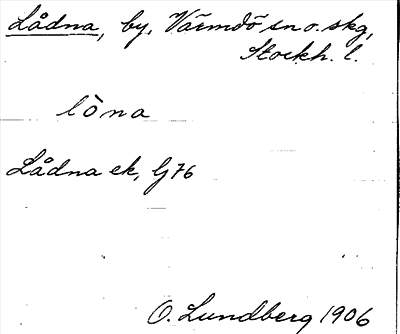 Lådna, by, Värmdö sn o. skg,
Stockh. l.
lòna
Lådna ek, G76
O. Lundberg 1906